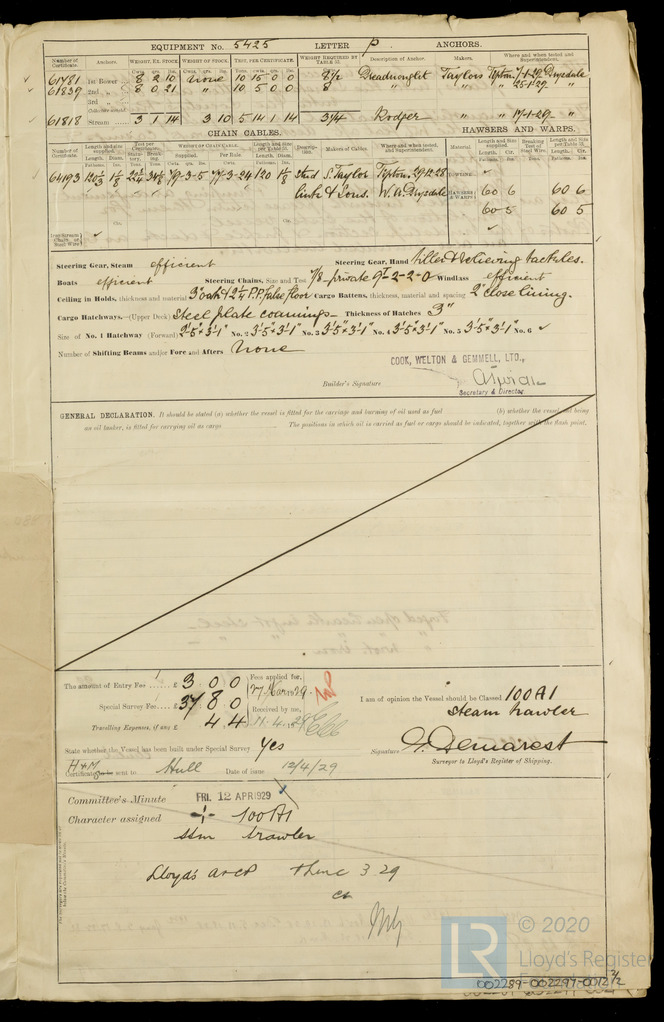 EQUIPMENT No. 5425 LETTER p ANCHORS.
Number of Certificate. Anchors. WEIGHT, EX. STOCK. WEIGHT OF STOCK. TEST, PER CERTIFICATE. WEIGHT REQUIRED BY TABLE 53. Description of Anchor. Makers. Where and when tested and Superintendent.
Cwts. qrs. lbs. Cwts. qrs. lbs. Tons. cwts. qrs. lbs. Cwts.
61781 1st Bower 8 2 10 None 10 15 0 0 8½ Dreadnought Taylors Tipton. 7-1-29 Drysdale
61839 2nd " 8 0 21 10 5 0 0 8 " " " 25-1-29 "
3rd "
61818 Stream 3 1 14 3 10 5 14 1 14 3¼ Rodger " " 17-1-29 "
CHAIN CABLES. HAWSERS AND WARPS.
Number of Certificate. Length and size supplied. Test per Certificate. WEIGHT OF CHAIN CABLE. Length and Size per Table 53. Description. Makers of Cables. Where and when tested, and Superintendent. Material. Length and Size supplied. Breaking Test of Steel Wire. Length and Size per Table 53.
Length. Diam. Statutory. Breaking. Supplied. Per Rule. Length. Diam. Length. Cir. Length. Cir.
64193 120⅓ 1⅛ 22¾ 34⅛ 79-3-5 77-3-24 120 1⅛ Stud S. Taylor Tipton. 29-12-28
link & Sons. W. A. Drysdale
TOWLINE
HAWSERS & WARPS 60 6 60 6
60 5 60 5
Steering Gear, Steam efficient Steering Gear, Hand tiller & relieving tackles.
Boats efficient Steering Chains, Size and Test 7/8 - private 9T-2-2-0 Windlass efficient
Ceiling in Holds, thickness and material 3" oak & 2¼ P.P. false floor Cargo Battens, thickness, material and spacing 2" close lining.
Cargo Hatchways.—(Upper Deck) Steel plate coamings — Thickness of Hatches 3"
Size of No. 1 Hatchway (Forward) 2'-5" x 3'-1" No. 2 3'-5" x 3'-1" No. 3 3'-5" x 3'-1" No. 4 3'-5" x 3'-1" No. 5 3'-5" x 3'-1" No. 6 ✓
Number of Shifting Beams and/or Fore and Afters None
COOK, WELTON & GEMMELL, LTD.,
Builder's Signature
Secretary & Director.
GENERAL DECLARATION. It should be stated (a) whether the vessel is fitted for the carriage and burning of oil used as fuel (b) whether the vessel being
an oil tanker, is fitted for carrying oil as cargo The positions in which oil is carried as fuel or cargo should be indicated, together with the flash point.
The amount of Entry Fee £ 3 0 0 Fees applied for,
27 Mar 1929
Special Survey Fee £ 37 8 0 Received by me,
Travelling Expenses, if any £ 4 4 11.4.29
I am of opinion the Vessel should be Classed 100A1
Steam trawler
State whether the Vessel has been built under Special Survey Yes
Signature G. Demarest
Surveyor to Lloyd's Register of Shipping.
H+M
Certificate to be sent to Hull Date of issue 12/4/29
Committee's Minute FRI. 12 APR 1929
Character assigned 100A1
Stm trawler
Lloyd's A&CP 3 29
© 2020
LR Lloyd's Register
002289-002297-0012 2/2